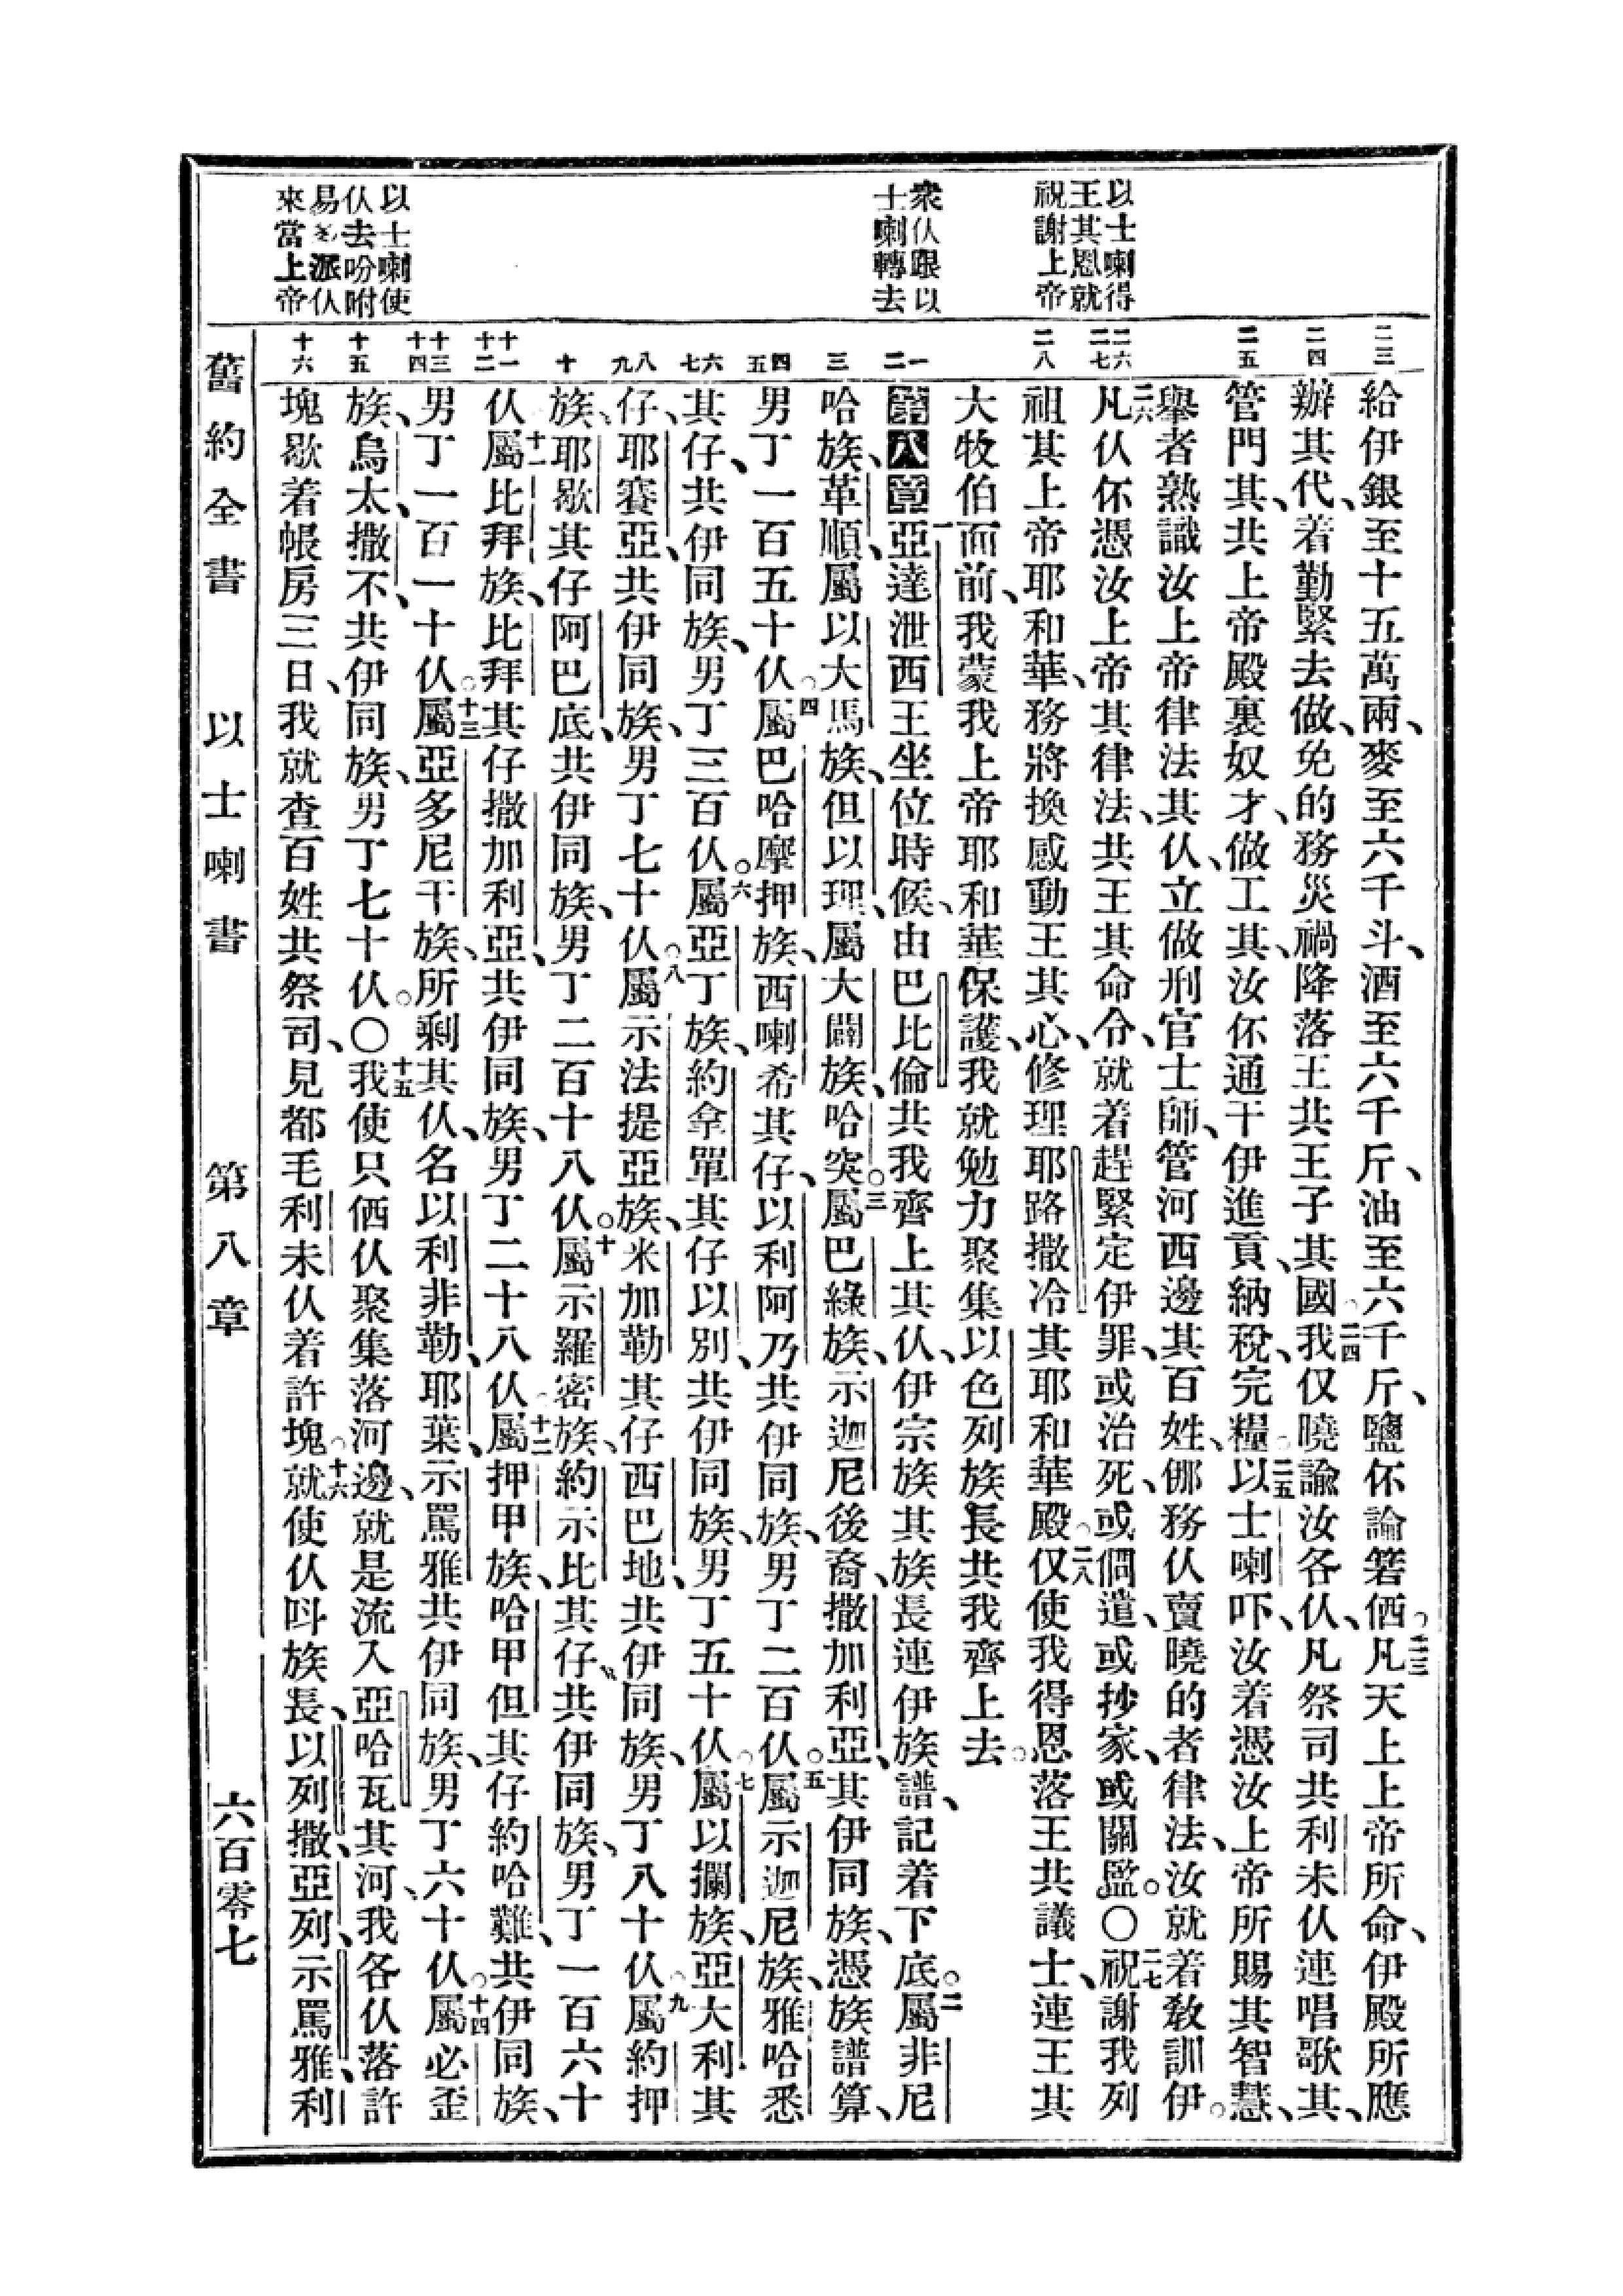 以士喇得
王其恩就
祝謝上帝
衆仫跟以
士喇轉去
以士喇使
仫去吩咐
易多派仫
來當上帝
二三
二四
二五
二六
二七
二八
一
二
三
四
五
六
七
八
九
十
十一
十二
十三
十四
十五
十六
給伊銀至十五萬兩、麥至六千斗、酒至六千斤、油至六千斤、鹽伓論箬㑚。二三凡天上上帝所命、伊殿所應
辦其代、着勤緊去做、免的務災禍降落王共王子其國。二四我仅曉諭汝各仫、凡祭司共利未仫連唱歌其、
管門其、共上帝殿裏奴才、做工其、汝伓通干伊進貢、納稅、完糧。二五以士喇吓、汝着憑汝上帝所賜其智慧、
舉者熟識汝上帝律法其仫、立做刑官士師、管河西邊其百姓、㑚務仫賣曉的者律法、汝就着敎訓伊。
二六凡仫伓憑汝上帝其律法、共王其命令、就着趕緊定伊罪、或治死、或倜遣、或抄家、或關監。〇二七祝謝我列
祖其上帝耶和華、務將換感動王其心、修理耶路撒冷其耶和華殿。二八仅使我得恩落王共議士、連王其
大牧伯面前、我蒙我上帝耶和華保護、我就勉力聚集以色列族長共我齊上去。
第八章一亞達泄西王坐位時候、由巴比倫共我齊上其仫、伊宗族其族長連伊族譜、記着下底。二屬非尼
哈族、革順、屬以大馬族、但以理、屬大闢族、哈突。三屬巴綠族、示迦尼後裔、撒加利亞、其伊同族、憑族譜算、
男丁一百五十仫。四屬巴哈摩押族、西喇希其仔、以利阿乃共伊同族、男丁二百仫。五屬示迦尼族、雅哈悉
其仔、共伊同族、男丁三百仫。六屬亞丁族、約拿單其仔以別、共伊同族、男丁五十仫。七屬以攔族、亞大利其
仔、耶賽亞、共伊同族、男丁七十仫。八屬示法提亞族、米加勒其仔西巴地、共伊同族、男丁八十仫。九屬約押
族、耶歇其仔阿巴底、共伊同族、男丁二百十八仫。十屬示羅密族、約示比其仔、共伊同族、男丁一百六十
仫。十一屬比拜族、比拜其仔撒加利亞、共伊同族、男丁二十八仫。十二屬押甲族、哈甲但其仔約哈難、共伊同族、
男丁一百一十仫。十三屬亞多尼干族、所剩其仫、名以利非勒、耶葉、示罵雅、共伊同族、男丁六十仫。十四屬必歪
族、烏太、撒不、共伊同族、男丁七十仫。〇十五我使只㑚仫聚集落河邊、就是流入亞哈瓦其河、我各仫落許
塊歇着帳房三日、我就查百姓共祭司、見都毛利未仫着許塊。十六就使仫呌族長、以列撒、亞列、示罵雅、利
舊約全書　以士喇書　第八章　六百零七